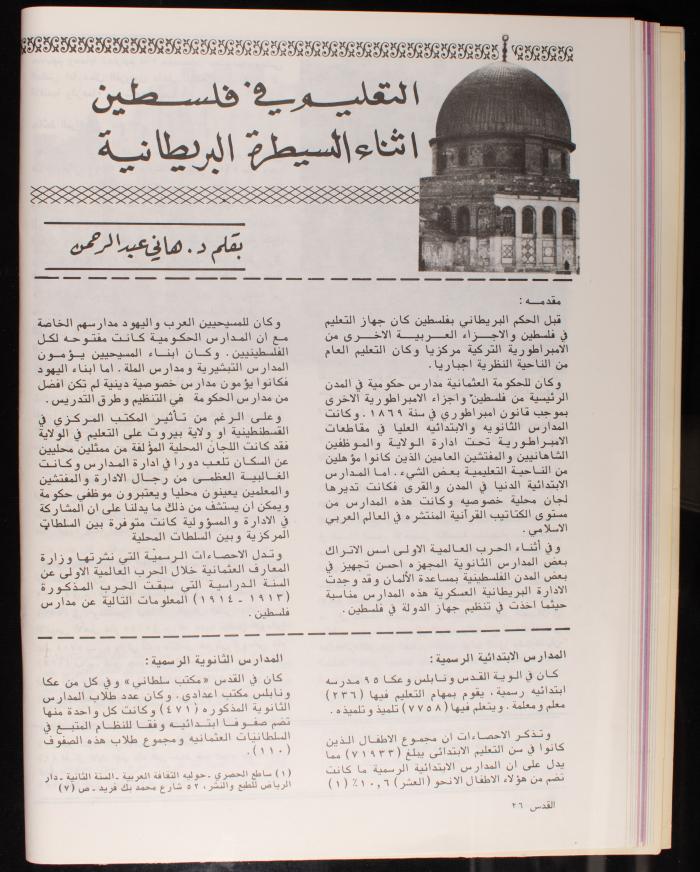 التعليم في فلسطين
اثناء السيطرة البريطانية
بقلم د. هاني عبد الرحمن
مقدمه :
قبل الحكم البريطاني بفلسطين كان جهاز التعليم
في فلسطين والاجزاء العربية الاخرى من
الامبراطورية التركية مركزيا وكان التعليم العام
من الناحية النظرية اجباريا.
وكان للحكومة العثمانية مدارس حكومية في المدن
الرئيسية من فلسطين واجزاء الامبراطورية الاخرى
بموجب قانون امبراطوري في سنة ١٨٦٩ . وكانت
المدارس الثانويه والابتدائيه العليا في مقاطعات
الامبراطورية تحت ادارة الولاية والموظفين
الشاهانيين والمفتشين العامين الذين كانوا مؤهلين
من الناحية التعليمية بعض الشيء. اما المدارس
الابتدائية الدنيا في المدن والقرى فكانت تديرها
لجان محلية خصوصيه وكانت هذه المدارس من
مستوى الكتاتيب القرآنية المنتشره في العالم العربي
الاسلامي.
وفي أثناء الحرب العالمية الاولى اسس الاتراك
بعض المدارس الثانوية المجهزه احسن تجهيز في
بعض المدن الفلسطينية بمساعدة الألمان وقد وجدت
الادارة البريطانية العسكرية هذه المدارس مناسبة
حيثما اخذت في تنظيم جهاز الدولة في فلسطين.
وكان للمسيحيين العرب واليهود مدارسهم الخاصة
مع ان المدارس الحكومية كانت مفتوحه لكل
الفلسطينيين. وكان ابناء المسيحيين يؤمون
المدارس التبشيرية ومدارس الملة. اما ابناء اليهود
فكانوا يؤمون مدارس خصوصية دينية لم تكن افضل
من مدارس الحكومة في التنظيم وطرق التدريس.
وعلى الرغم من تأثير المكتب المركزي في
القسطنطينية او ولاية بيروت على التعليم في الولاية
فقد كانت اللجان المحلية المؤلفة من ممثلين محليين
عن السكان تلعب دورا في ادارة المدارس وكانت
الغالبية العظمى من رجال الادارة والمفتشين
والمعلمين يعينون محليا ويعتبرون موظفي حكومة
ويمكن ان يستشف من ذلك ما يدلنا على ان المشاركة
في الادارة والمسؤولية كانت متوفرة بين السلطات
المركزية وبين السلطات المحلية
وتدل الاحصاءات الرسمية التي نشرتها وزارة
المعارف العثمانية خلال الحرب العالمية الاولى عن
السنة الدراسية التي سبقت الحرب المذكورة
(١٩١٣ - ١٩١٤) المعلومات التالية عن مدارس
فلسطين.
المدارس الابتدائية الرسمية:
كان في الوية القدس ونابلس وعكا ٩٥ مدرسه
ابتدائيه رسمية، يقوم بمهام التعليم فيها (٢٣٦)
معلم ومعلمة. ويتعلم فيها (٧٧٥٨) تلميذ وتلميذه.
وتذكر الاحصاءات ان مجموع الاطفال الذين
كانوا في سن التعليم الابتدائى يبلغ (٧١٩٣٣) مما
يدل على ان المدارس الابتدائية الرسمية ما كانت
تضم من هؤلاء الاطفال الانحو (العشر) ١٠,٦٪ (١)
المدارس الثانوية الرسمية:
كان في القدس «مكتب سلطاني» وفي كل من عكا
ونابلس مكتب اعدادي. وكان عدد طلاب المدارس
الثانوية المذكوره (٤٧١) وكانت كل واحدة منها
تضم صفوفا ابتدائيه وفقا للنظام المتبع في
السلطانيات العثمانيه ومجموع طلاب هذه الصفوف
(١١٠).
(١) ساطع الحصري - حوليه الثقافة العربية - السنة الثانية - دار
الرياض للطبع والنشر، ٥٢ شارع محمد بك فريد - ص (٧)
القدس ٢٦